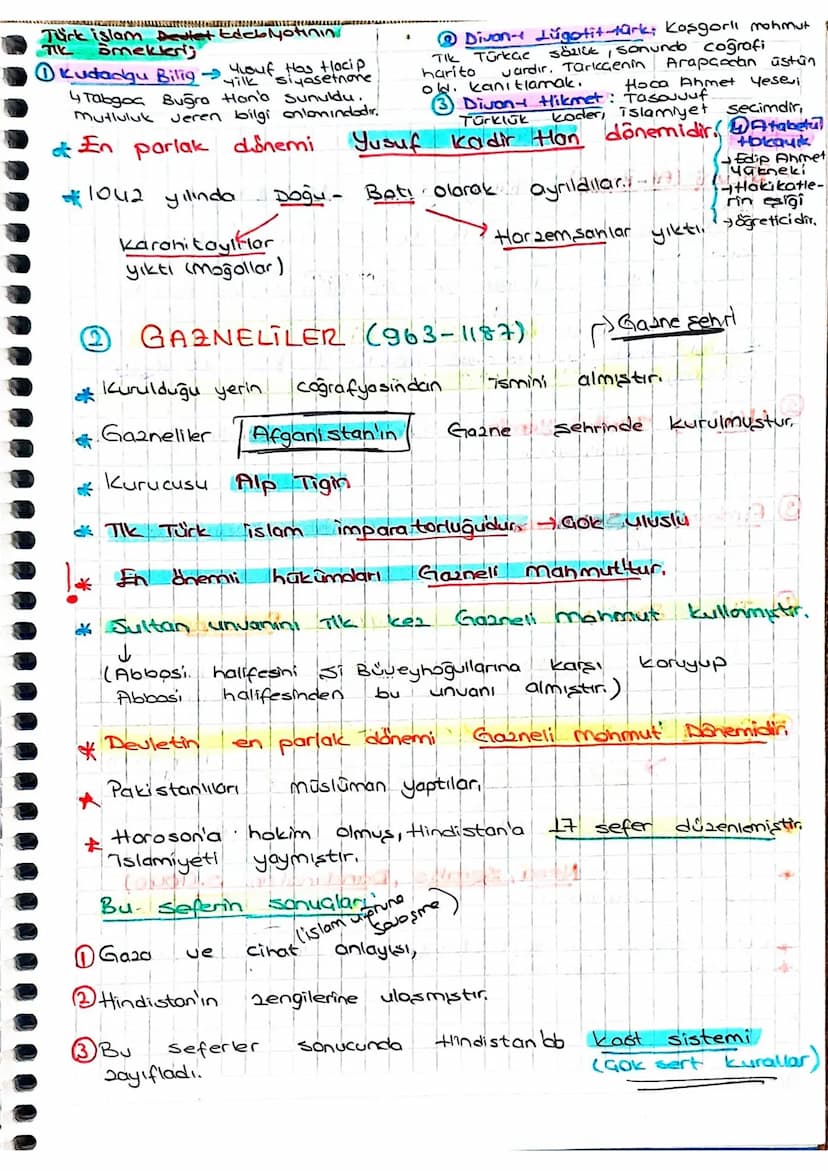 Türk islam Devlet Edebiyatının
ilk örnekleri;
① Kudadgu Bilig → Yusuf Has Hacip
ilk siyasetname
↳ Tabgaç Buğra Han'a sunuldu.
mutluluk veren bilgi anlamındadır.
② Divan-ı Lügatit-türk: Kaşgarlı mahmut
ilk Türkçe sözlük, sonunda coğrafi
harita vardır. Türkçenin Arapçadan üstün
old. kanıtlamak.
③ Divan-ı Hikmet: Hoca Ahmet Yesevi
Tasavvuf
Türklük kader, islamiyet seçimdir.
④ Atabetül
Hakayık
→ Edip Ahmet
Yükneki
→ Hakikatle-
rin eşiği
→ öğreticidir.
* En parlak dönemi Yusuf Kadir Han dönemidir.
* 1042 yılında Doğu - Batı olarak ayrıldılar.
Karahitaylılar
yıktı (moğollar)
Harzemşahlar yıktı.
② GAZNELİLER (963-1187)
→ Gazne şehri
* Kurulduğu yerin coğrafyasından ismini almıştır.
* Gazneliler Afganistan'ın Gazne şehrinde kurulmuştur.
* Kurucusu Alp Tigin
* ilk Türk islam imparatorluğudur. → Çok uluslu
! * En önemli hükümdarı Gazneli mahmut'tur.
* Sultan unvanını ilk kez Gazneli mahmut kullanmıştır.
↓
(Abbasi halifesini Şi Büveyhoğullarına karşı koruyup
Abbasi halifesinden bu unvanı almıştır.)
* Devletin en parlak dönemi Gazneli mahmut Dönemidir.
* Pakistanlıları müslüman yaptılar,
* Horosan'a hakim olmuş, Hindistan'a 17 sefer düzenlemiştir.
islamiyeti yaymıştır.
Bu seferin sonuçları;
(islam uğruna
savaşma)
① Gaza ve cihat anlayışı,
② Hindistan'ın zengilerine ulaşmıştır.
③ Bu seferler sonucunda Hindistan kast sistemi
zayıfladı.
(Çok sert kurallar)